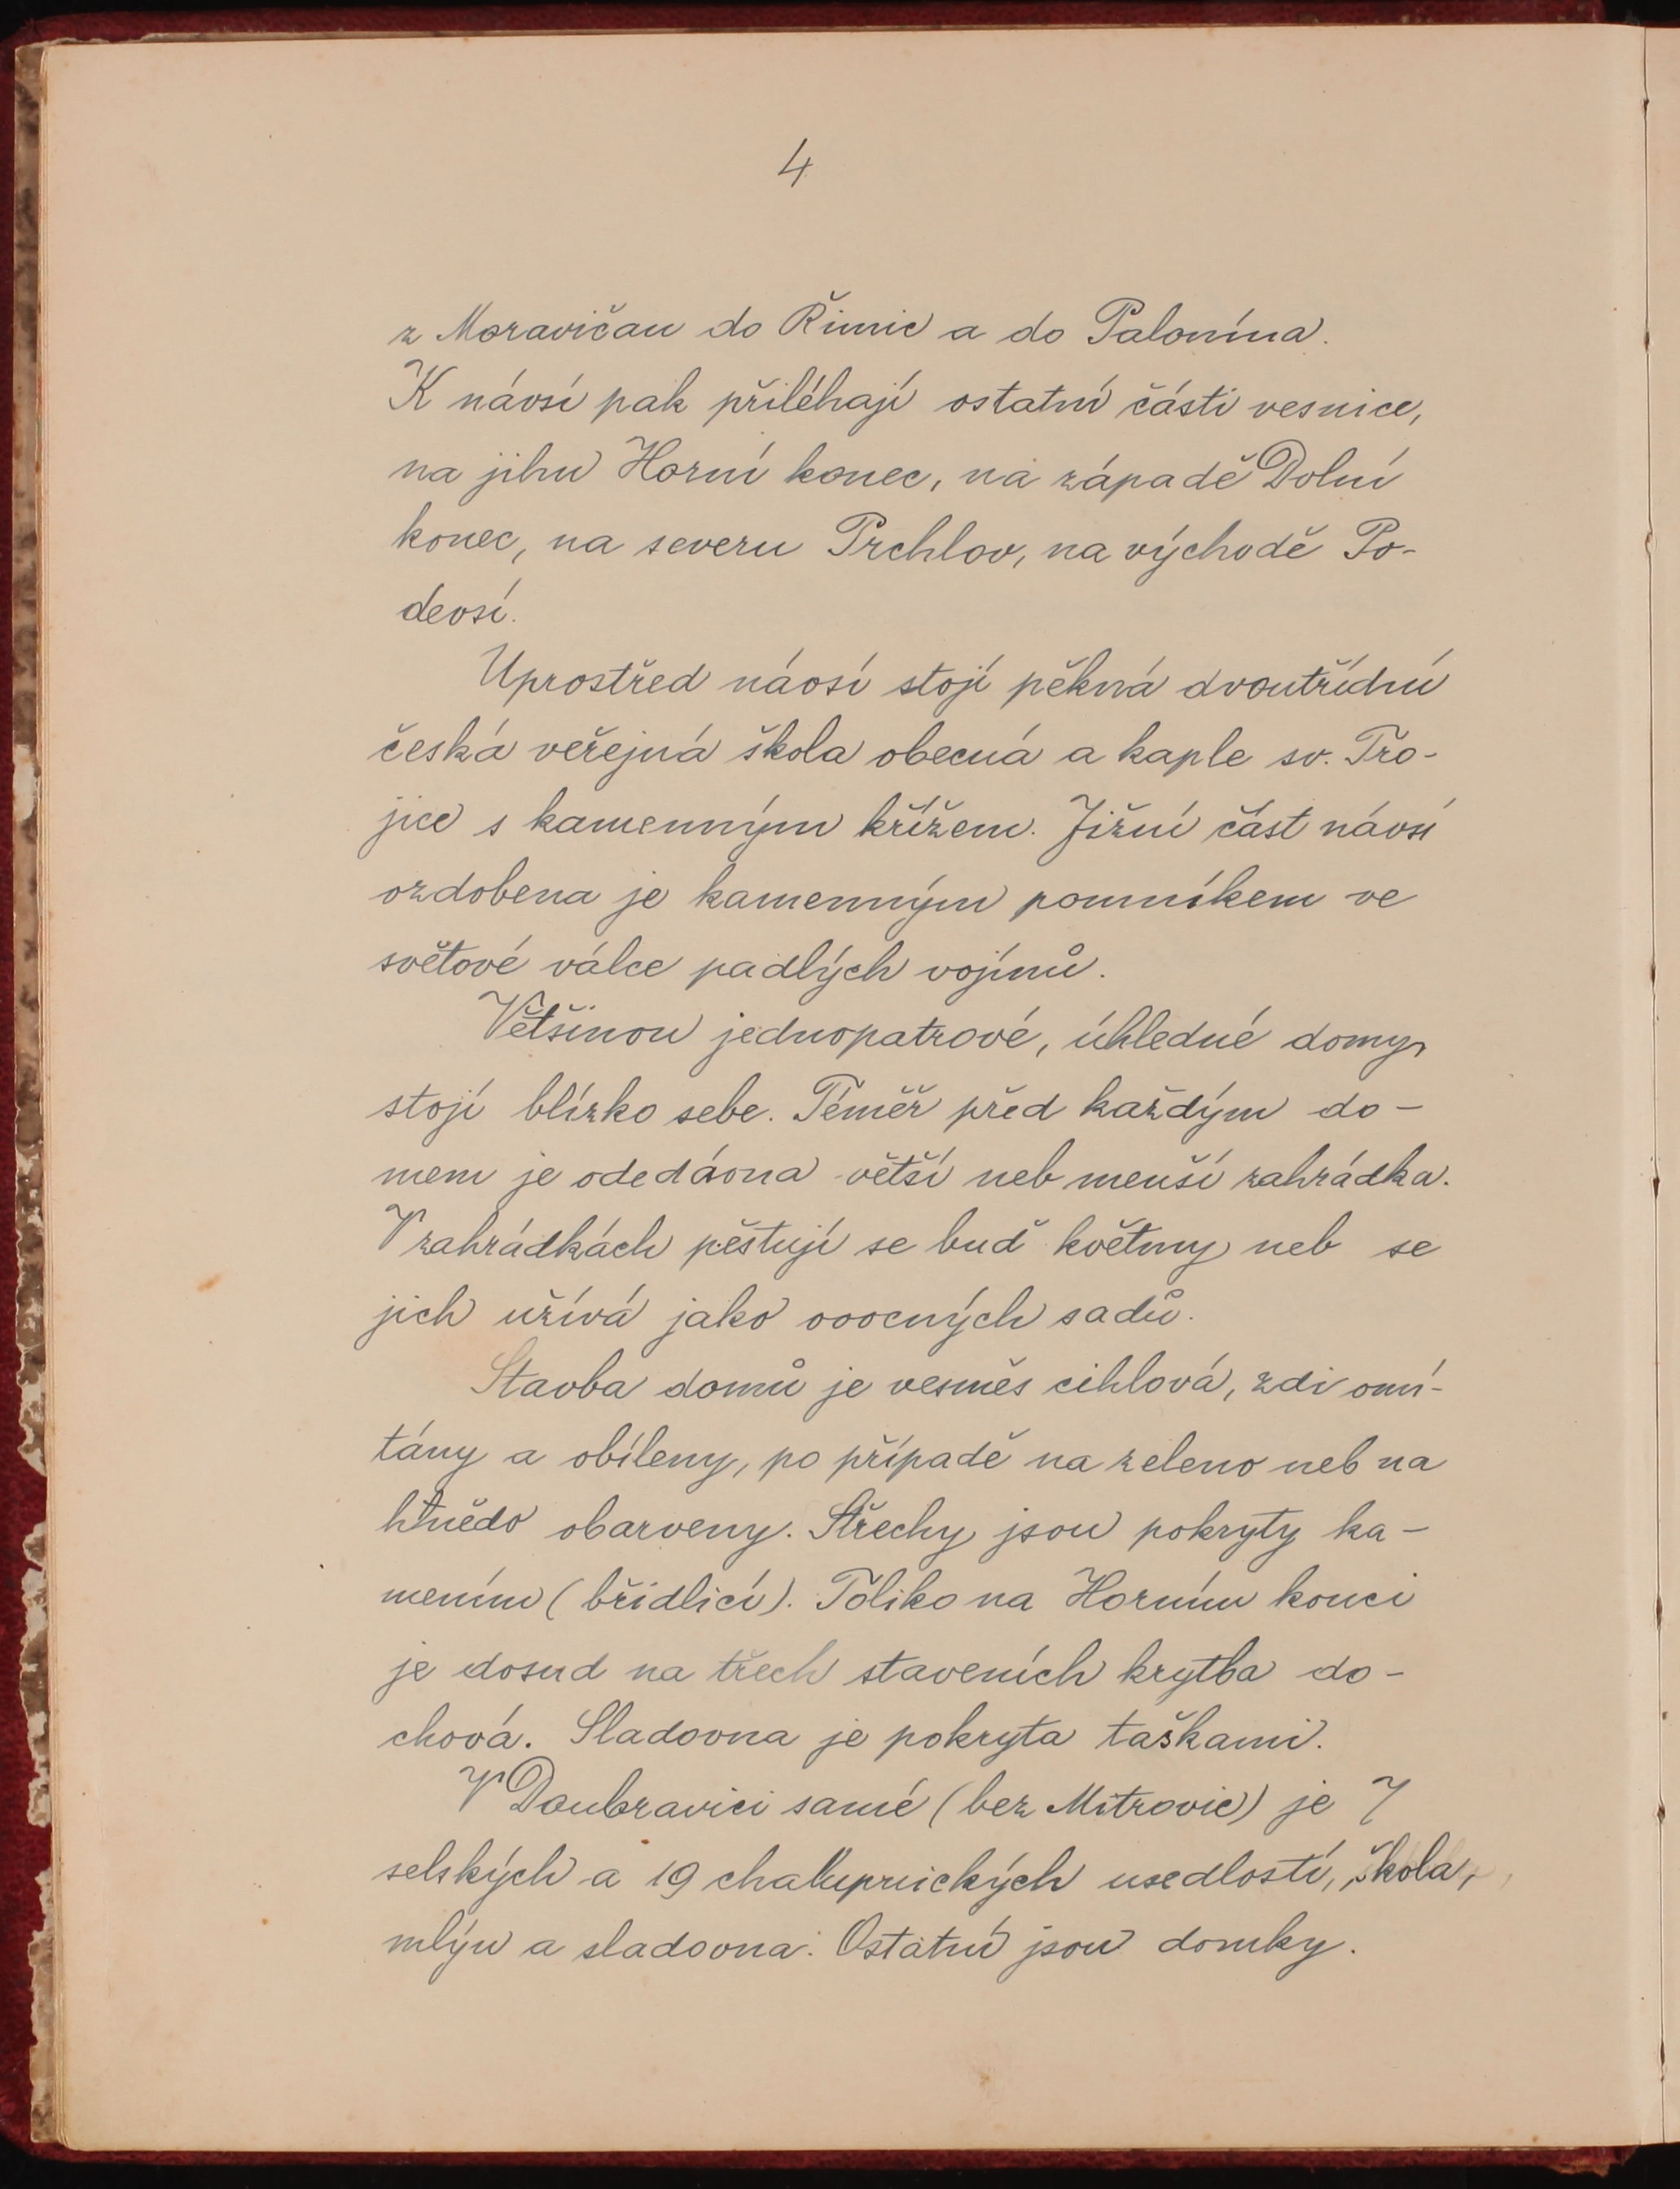 4
z Moravičan do Řimic a do Palonína.
K návsi pak přiléhají ostatní části vesnice,
na jihu Horní konec, na západě Dolní
konec, na severu Prchlov, na východě Po-
devsí.
Uprostřed návsi stojí pěkná dvoutřídní
česká veřejná škola obecná a kaple sv. Tro-
jice s kamenným křížem. Jižní část návsi
ozdobena je kamenným pomníkem ve
světové válce padlých vojínů.
Většinou jednopatrové, úhledné domy
stojí blízko sebe. Téměř před každým do-
mem je odedávna větší neb menší zahrádka.
V zahrádkách pěstují se buď květiny neb se
jich užívá jako ovocných sadů.
Stavba domů je vesměs cihlová, zdi omí-
tány a obíleny, po případě na zeleno neb na
hnědo obarveny. Střechy jsou pokryty ka-
mením (břidlicí). Toliko na Horním konci
je dosud na třech staveních krytba do-
chová. Sladovna je pokryta taškami.
V Doubravici samé (bez Mitrovic) je 7
selských a 19 chalupnických usedlostí, škola,
mlýn a sladovna. Ostatní jsou domky.